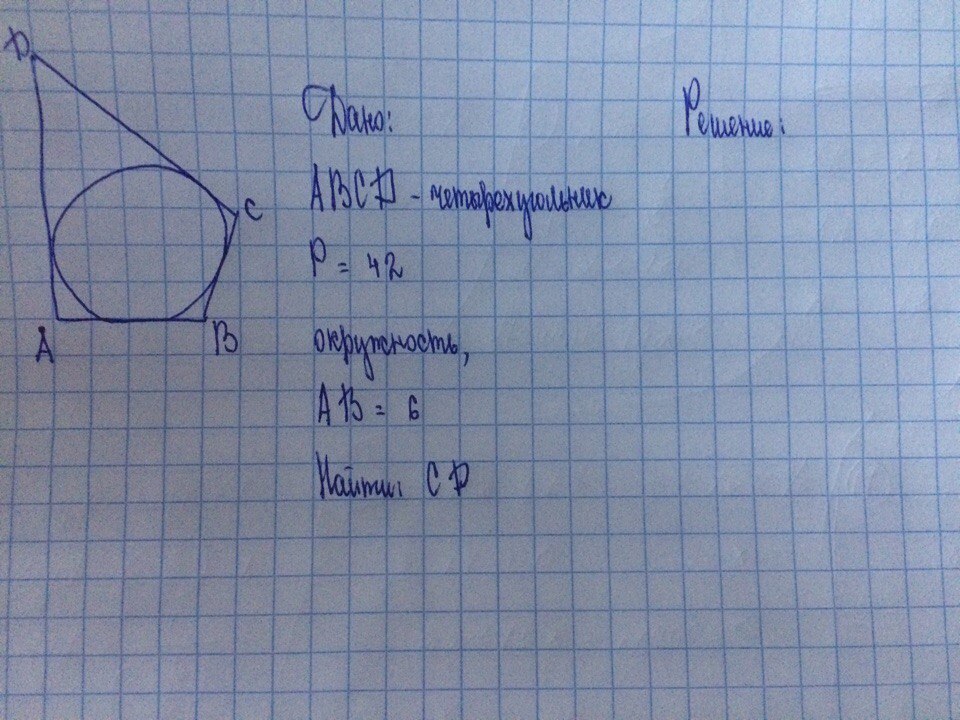 D
C
A
B
Дано:
ABCD - четырехугольник
P = 42
окружность,
AB = 6
Найти: CD
Решение: